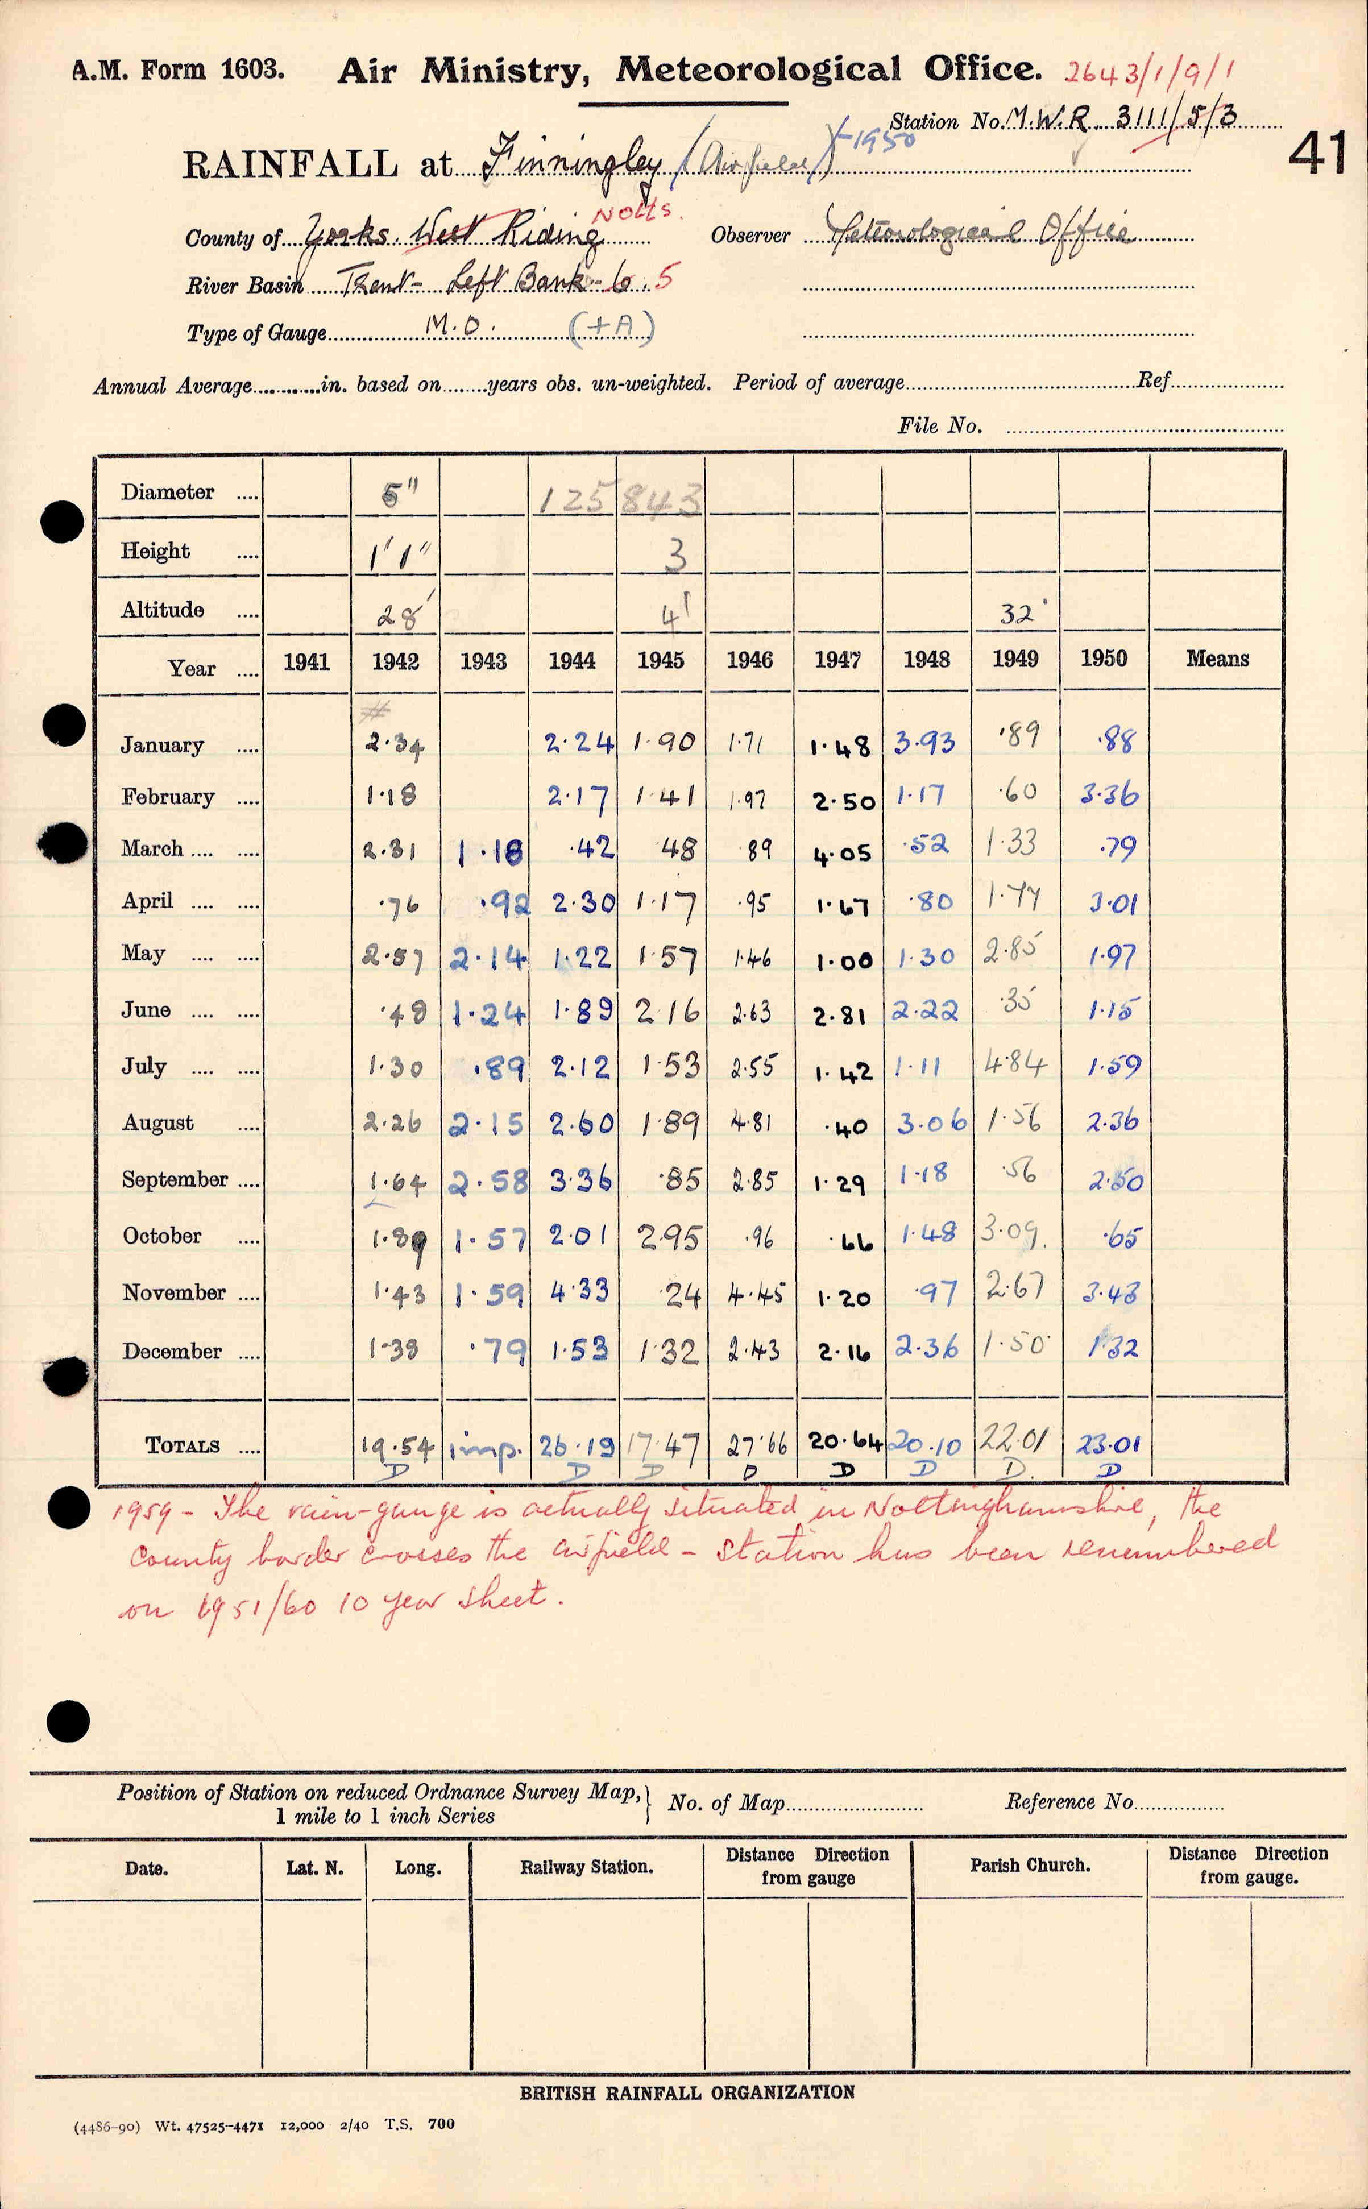 A.M. Form 1603. Air Ministry, Meteorological Office. 2643/1/9/1
Station No. M.W.R. 3111/5/3
41
RAINFALL at Finningley (Airfield) -1950
County of Yorks. West Riding Notts. Observer Meteorological Office
River Basin Trent - Left Bank - 6.5
Type of Gauge M.O. (+A)
Annual Average in. based on years obs. un-weighted. Period of average Ref.
File No.
Diameter .... 5" 125843
Height .... 1'1" 3
Altitude .... 28' 4' 32'
Year .... 1941 1942 1943 1944 1945 1946 1947 1948 1949 1950 Means
#
January .... 2.34 2.24 1.90 1.71 1.48 3.93 .89 .88
February .... 1.18 2.17 1.41 1.97 2.50 1.17 .60 3.36
March .... .... 2.31 1.18 .42 48 89 4.05 .52 1.33 .79
April .... .... .76 .92 2.30 1.17 .95 1.67 .80 1.77 3.01
May .... .... 2.57 2.14 1.22 1.57 1.46 1.00 1.30 2.85 1.97
June .... .... .49 1.24 1.89 2.16 2.63 2.81 2.22 .35 1.15
July .... .... 1.30 .89 2.12 1.53 2.55 1.42 1.11 4.84 1.59
August .... 2.26 2.15 2.60 1.89 4.81 .40 3.06 1.56 2.36
September .... 1.64 2.58 3.36 .85 2.85 1.29 1.18 .56 2.50
October .... 1.89 1.57 2.01 2.95 .96 .66 1.48 3.09 .65
November .... 1.43 1.59 4.33 24 4.45 1.20 .97 2.67 3.43
December .... 1.38 .79 1.53 1.32 2.43 2.16 2.36 1.50 1.32
TOTALS .... 19.54 imp. 26.19 17.47 27.66 20.64 20.10 22.01 23.01
D D D D D D D D
1959 - The rain-gauge is actually situated in Nottinghamshire, the
County border crosses the airfield - Station has been renumbered
on 1951/60 10 year sheet.
Position of Station on reduced Ordnance Survey Map, } No. of Map Reference No.
1 mile to 1 inch Series
Date. Lat. N. Long. Railway Station. Distance Direction from gauge Parish Church. Distance Direction from gauge.
BRITISH RAINFALL ORGANIZATION
(4486-90) Wt. 47525-4471 12,000 2/40 T.S. 700